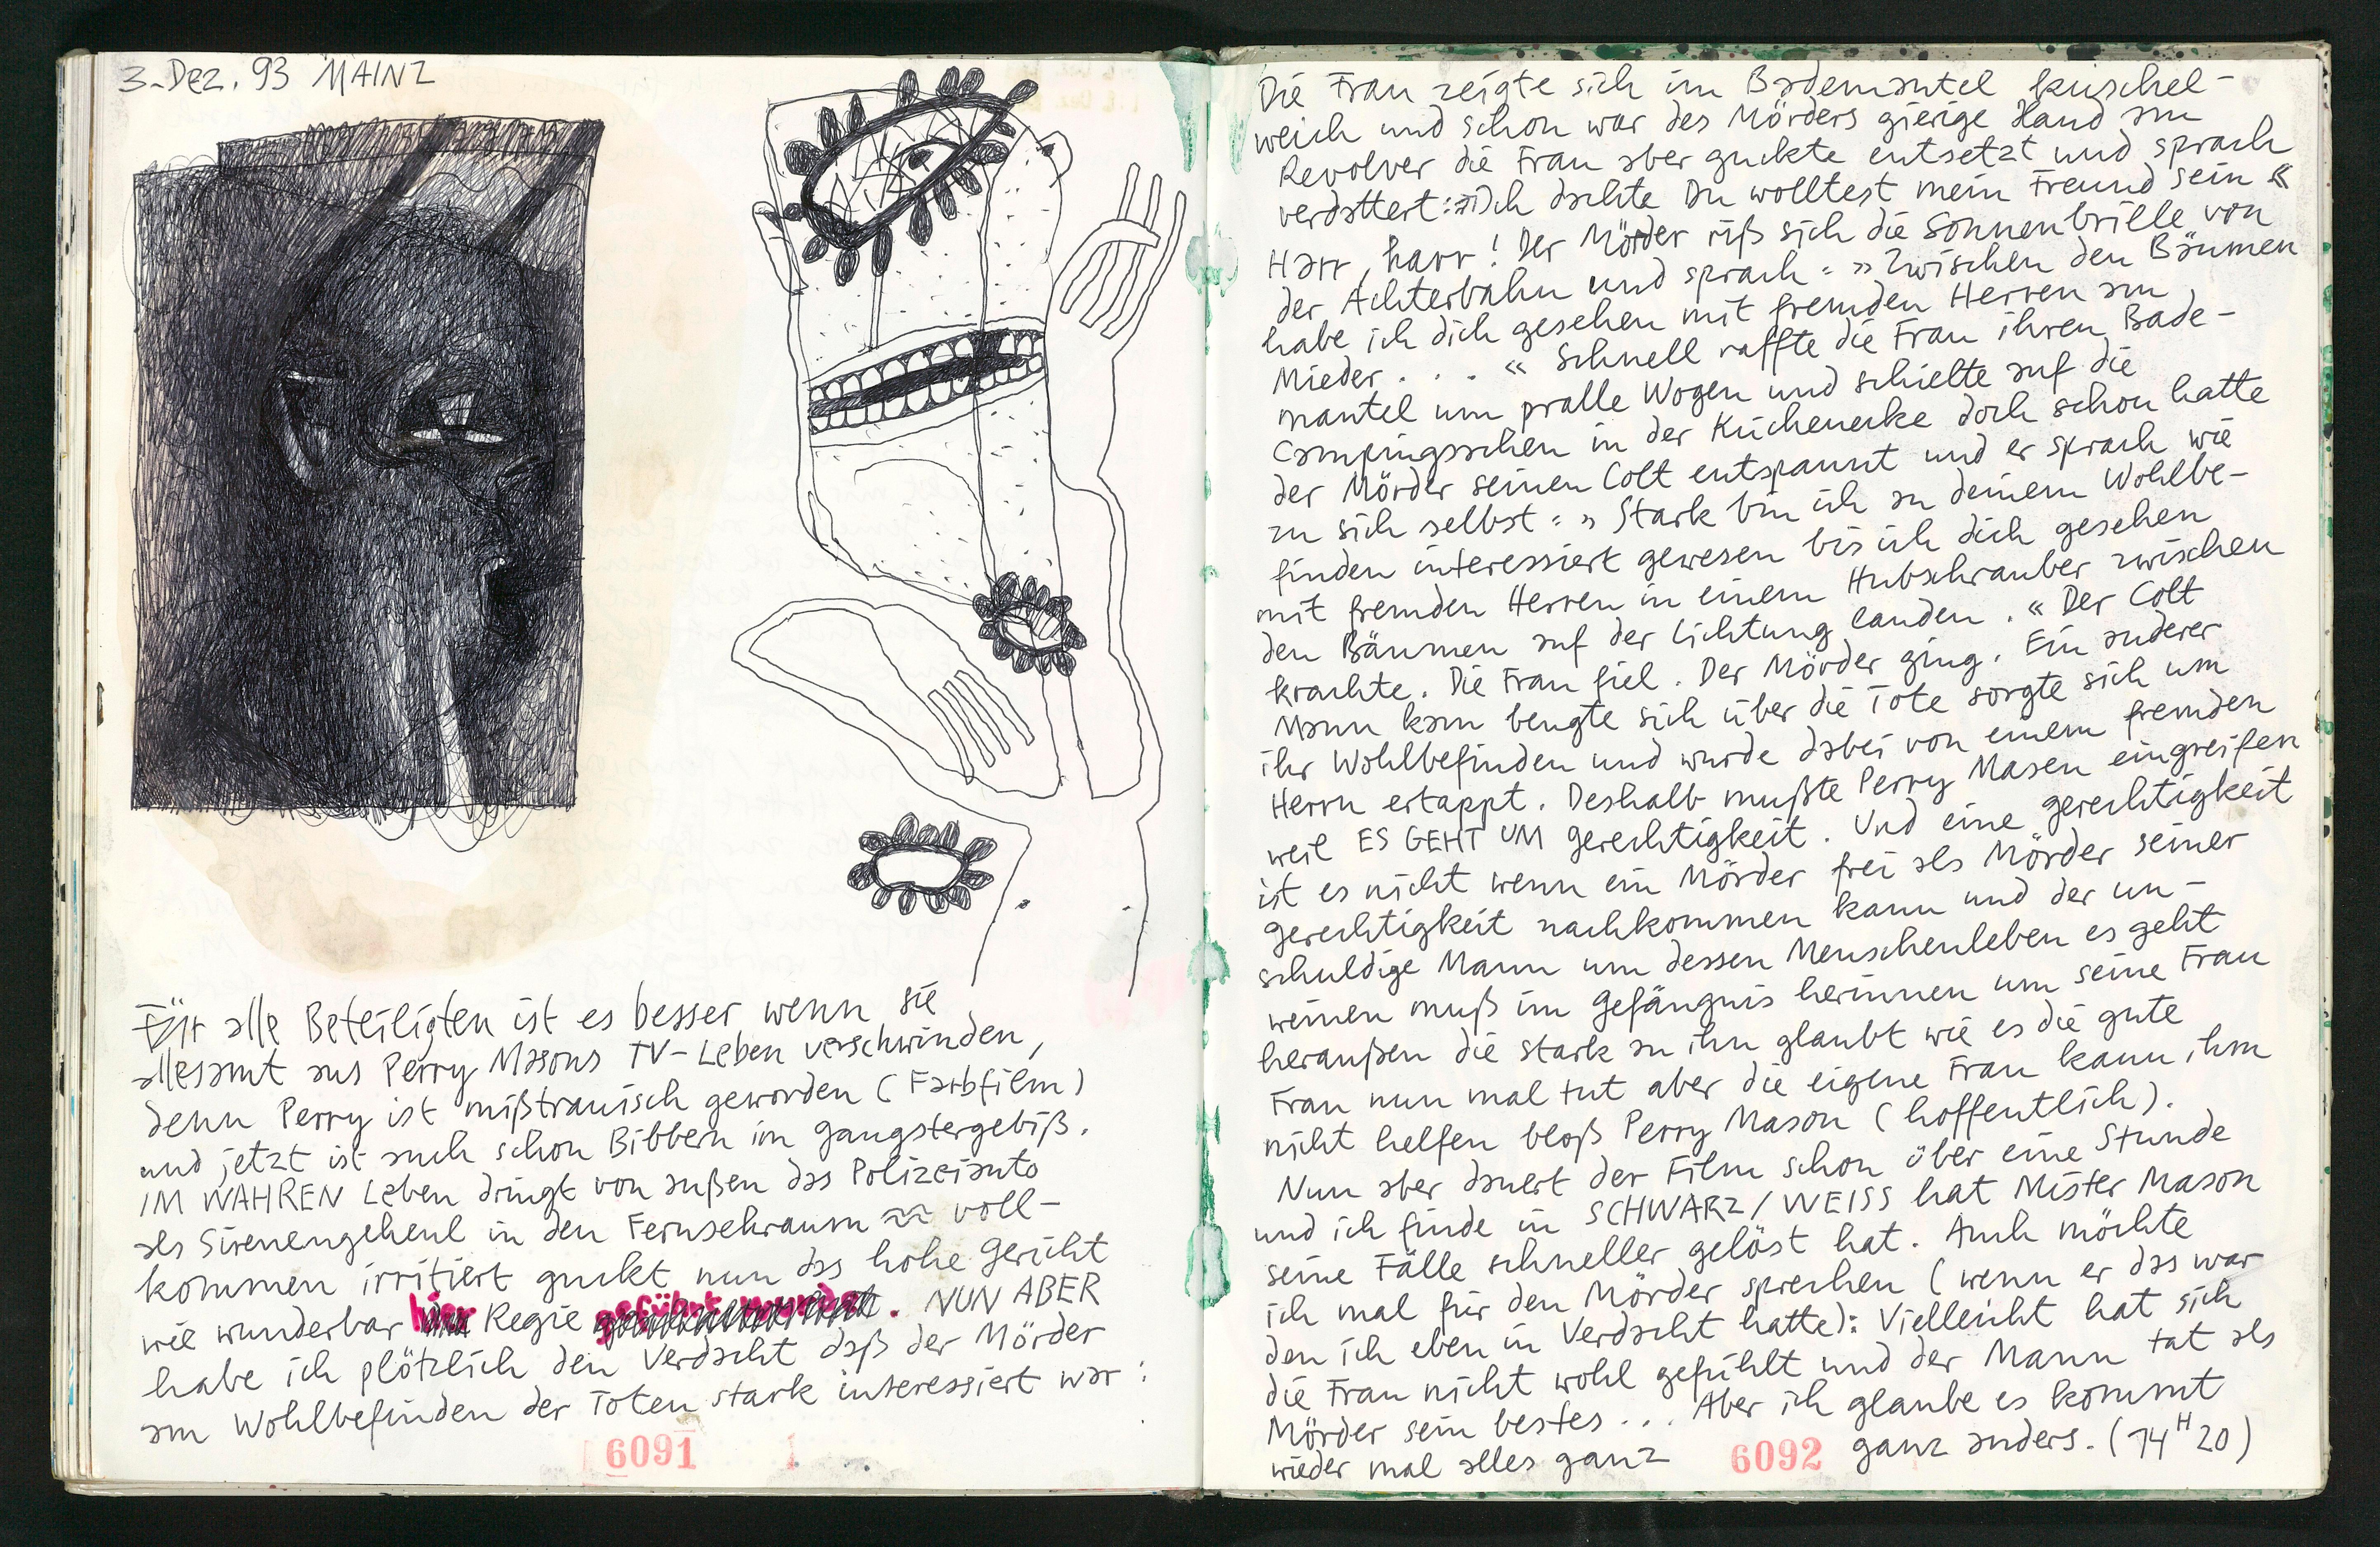 3. Dez. 93 MAINZ
Für alle Beteiligten ist es besser wenn sie
allesamt aus Perry Masons TV-Leben verschwinden,
denn Perry ist mißtrauisch geworden (Farbfilm)
und jetzt ist auch schon Bibbern im gangstergebiß.
IM WAHREN Leben dringt von außen das Polizeiauto
als Sirenengeheul in den Fernsehraum ≈ voll-
kommen irritiert guckt nun das hohe Gericht
wie wunderbar hier Regie geführt wurde. NUN ABER
habe ich plötzlich den Verdacht daß der Mörder
am Wohlbefinden der Toten stark interessiert war:
6091
Die Frau zeigte sich im Bademantel kuschel-
weich und schon war des Mörders gierige Hand am
Revolver die Frau aber guckte entsetzt und sprach
verdattert: »Ich dachte Du wolltest mein Freund sein«
Harr, harr! Der Mörder riß sich die Sonnenbrille von
der Achterbahn und sprach: »Zwischen den Bäumen
habe ich dich gesehen mit fremden Herren am
Mieder . . . « Schnell raffte die Frau ihren Bade-
mantel um pralle Wogen und schielte auf die
Campingsachen in der Küchenecke doch schon hatte
der Mörder seinen Colt entspannt und er sprach wie
zu sich selbst: »Stark bin ich an deinem Wohlbe-
finden interessiert gewesen bis ich dich gesehen
mit fremden Herren in einem Hubschrauber zwischen
den Bäumen auf der Lichtung landen.« Der Colt
krachte. Die Frau fiel. Der Mörder ging. Ein anderer
Mann kam beugte sich über die Tote sorgte sich um
ihr Wohlbefinden und wurde dabei von einem fremden
Herrn ertappt. Deshalb mußte Perry Masen eingreifen
weil ES GEHT UM gerechtigkeit. Und eine gerechtigkeit
ist es nicht wenn ein Mörder frei als Mörder seiner
gerechtigkeit nachkommen kann und der un-
schuldige Mann um dessen Menschenleben es geht
weinen muß im Gefängnis herinnen um seine Frau
heraußen die stark an ihn glaubt wie es die gute
Frau nun mal tut aber die eigene Frau kann ihm
nicht helfen bloß Perry Mason (hoffentlich).
Nun aber dauert der Film schon über eine Stunde
und ich finde in SCHWARZ/WEISS hat Mister Mason
seine Fälle schneller gelöst hat. Auch möchte
ich mal für den Mörder sprechen (wenn er das war
den ich eben in Verdacht hatte): Vielleicht hat sich
die Frau nicht wohl gefühlt und der Mann tat als
Mörder sein bestes... Aber ich glaube es kommt
wieder mal alles ganz ganz anders. (14H20)
6092